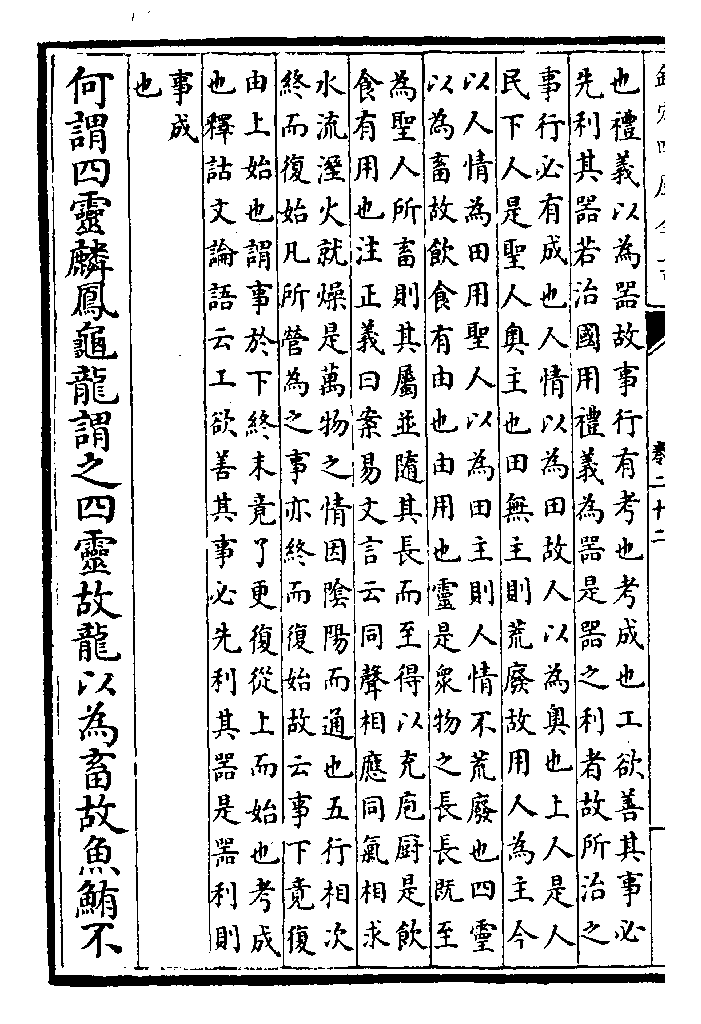 卷二十二
也禮義以為器故事行有考也考成也工欲善其事必
先利其器若治國用禮義為器是器之利者故所治之
事行必有成也人情以為田故人以為奧也上人是人
民下人是聖人奧主也田無主則荒廢故用人為主今
以人情為田用聖人以為田主則人情不荒廢也四靈
以為畜故飲食有由也由用也靈是眾物之長長既至
為聖人所畜則其屬並隨其長而至得以充庖厨是飲
食有用也注正義曰案易文言云同聲相應同氣相求
水流溼火就燥是萬物之情因陰陽而通也五行相次
終而復始凡所營為之事亦終而復始故云事下竟復
由上始也謂事於下終末竟了更復從上而始也考成
也釋詁文論語云工欲善其事必先利其器是器利則
事成
也
何謂四靈麟鳳龜龍謂之四靈故龍以為畜故魚鮪不